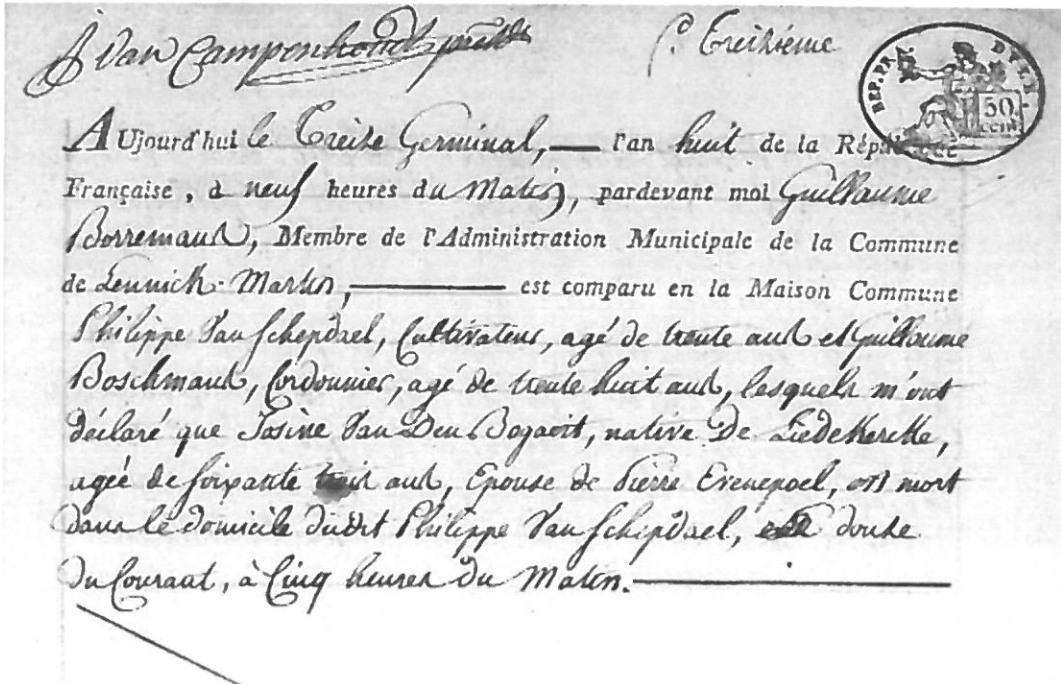 J Van Campenhoudt presidt
f.º Treizième
REP. FRA 50 CENT
AUjourd'hui le Treize Germinal, l'an huit de la République
Française, à neuf heures du Matin, pardevant moi Guillaume
Borremans, Membre de l'Administration Municipale de la Commune
de Lennick-Martin, est comparu en la Maison Commune
Philippe Van Schepdael, Cultivateur, agé de trente ans et Guillaume
Boschmans, Cordonnier, agé de trente huit ans, lesquels m'ont
déclaré que Josine Van Den Bogaert, native De Liedekercke,
agée de soixante trois ans, Epouse de Pierre Evenepoel, est mort
dans le domicile dudit Philippe Van Schepdael, douze
Du Courant, à Cinq heures Du Matin.